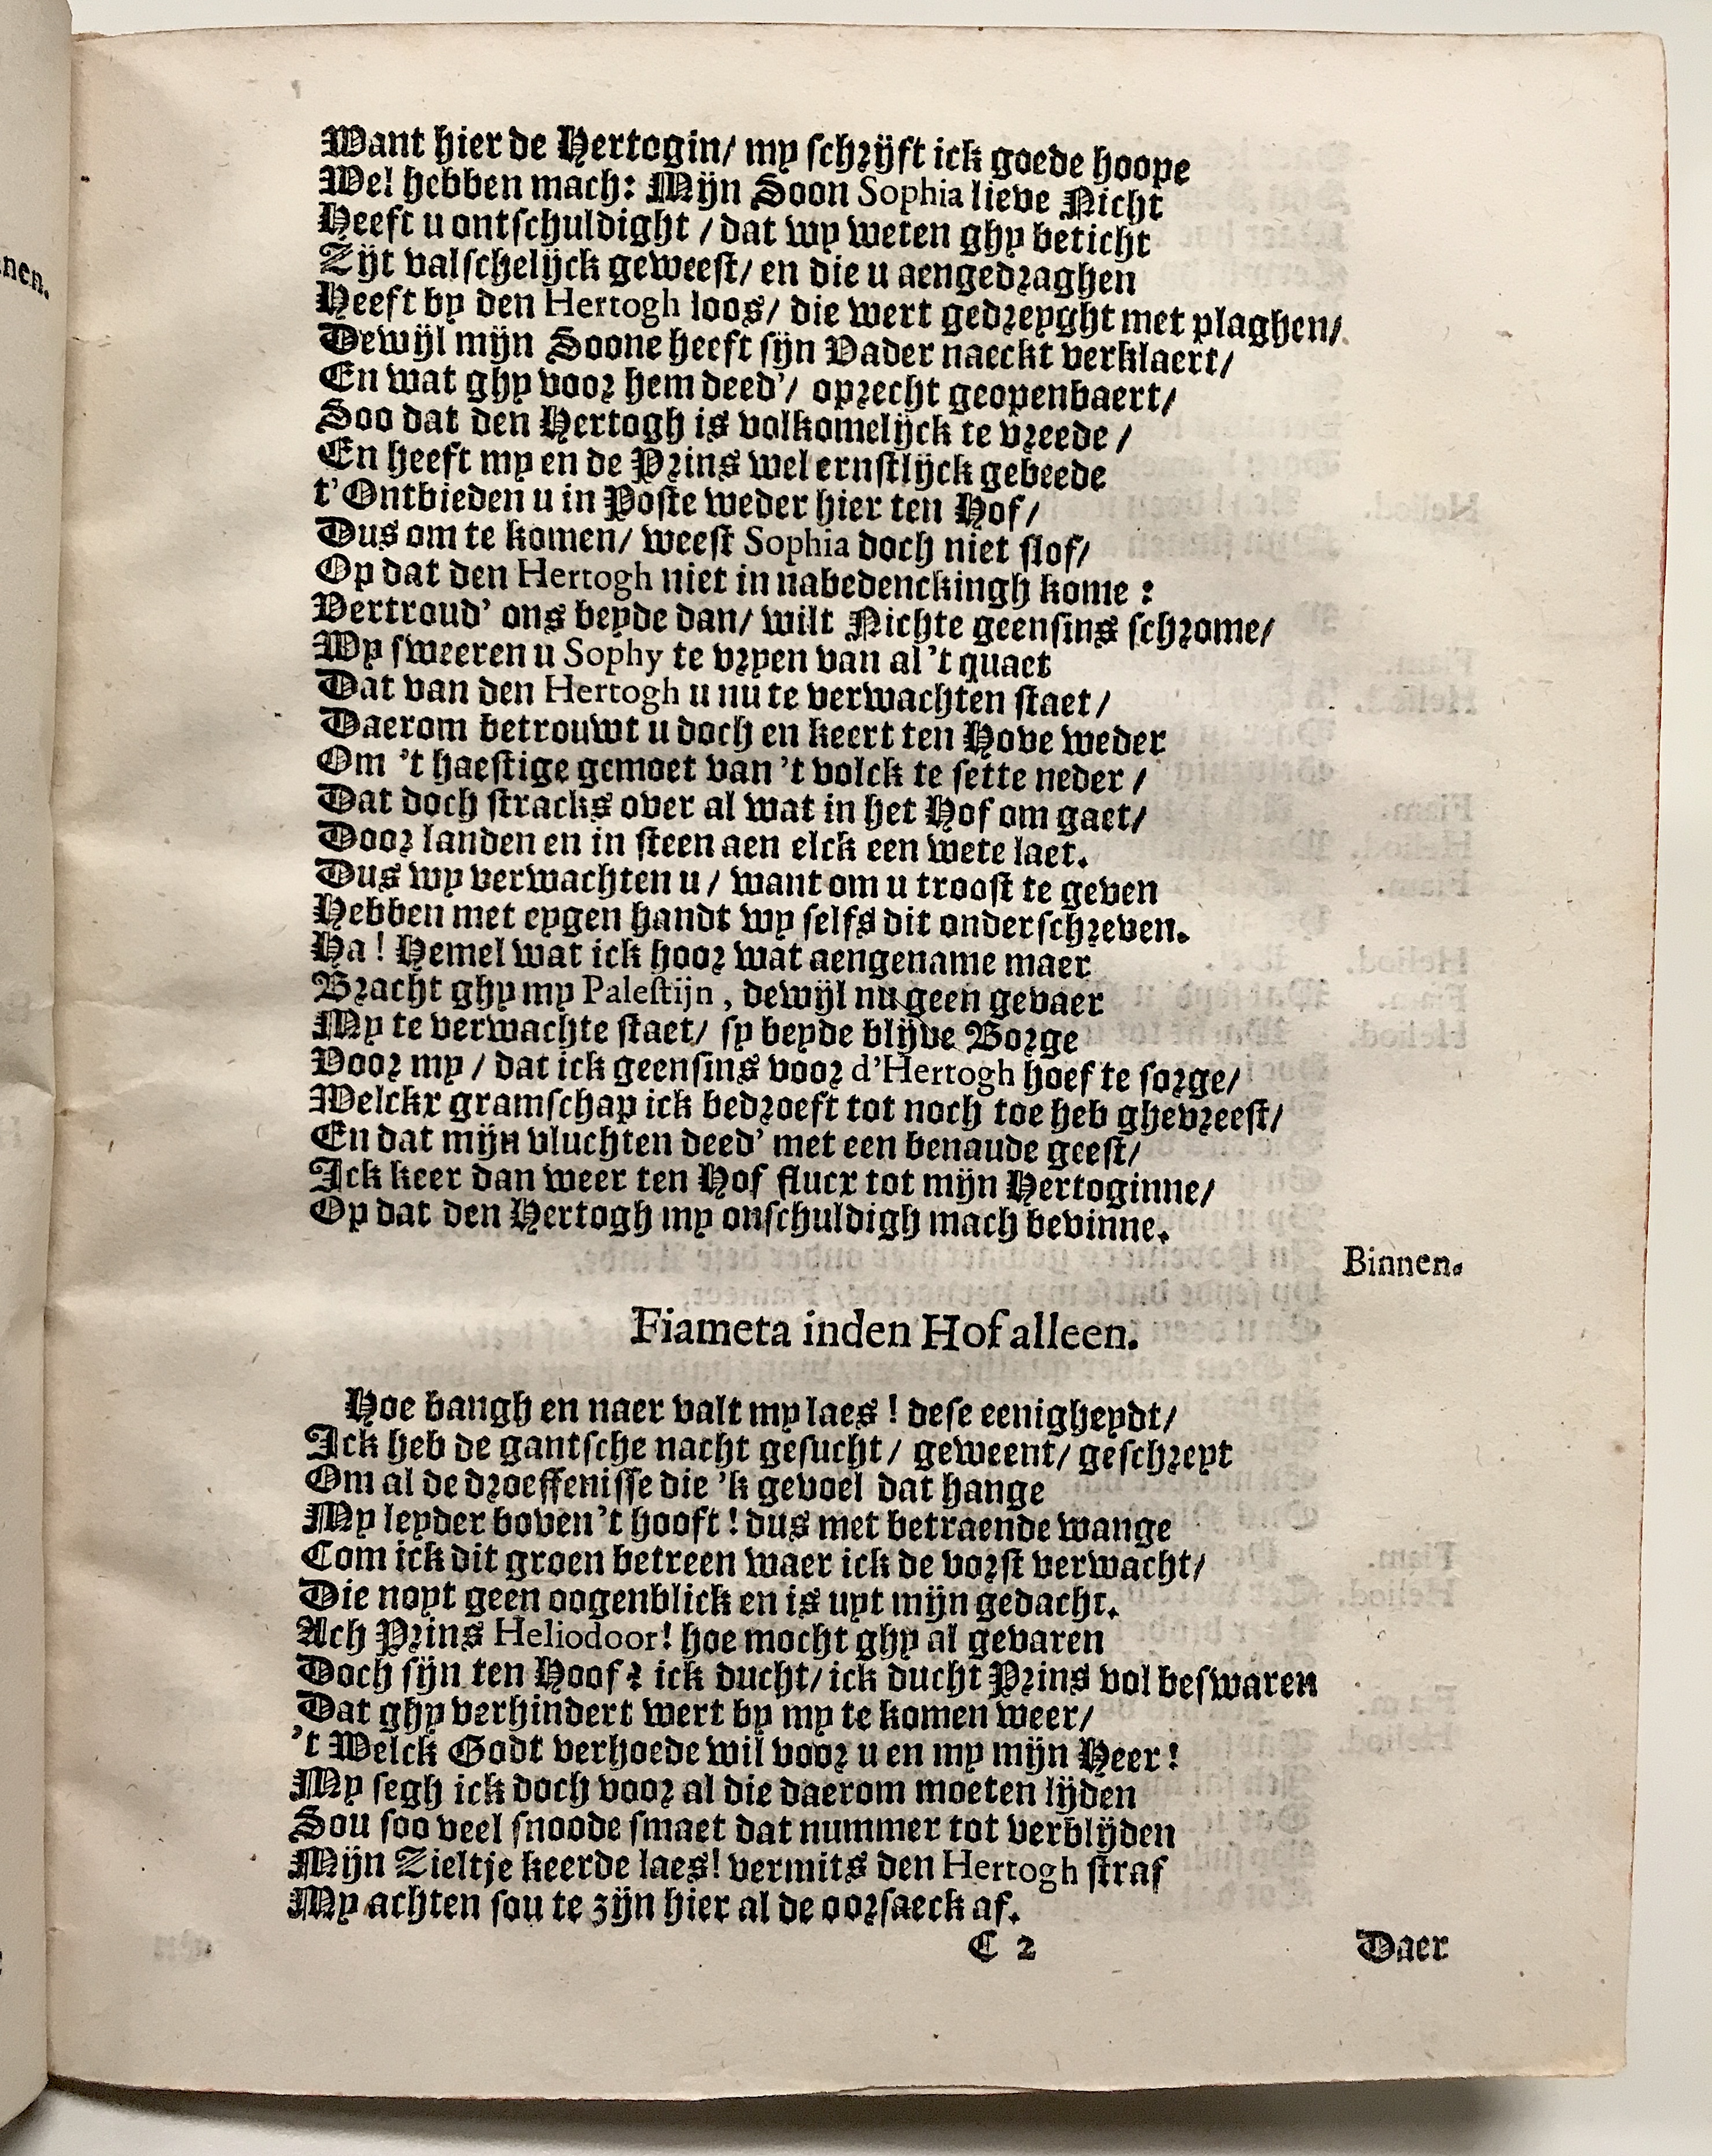 nen.
Want hier de Hertogin/ my schrijft ick goede hoope
Wel hebben mach: Mijn Soon Sophia lieve Nicht
Heeft u ontschuldight / dat wy weten ghy beticht
Zijt valschelijck geweest/ en die u aengedraghen
Heeft by den Hertogh loos/ die wert gedreyght met plaghen/
Dewijl mijn Soone heeft sijn Vader naeckt verklaert/
En wat ghy voor hem deed'/ oprecht geopenbaert/
Soo dat den Hertogh is volkomelijck te vreede /
En heeft my en de Prins wel ernstlijck gebeede
t'Ontbieden u in Poste weder hier ten Hof/
Dus om te komen/ weest Sophia doch niet slof/
Op dat den Hertogh niet in nabedenckingh kome :
Vertroud' ons beyde dan/ wilt Nichte geensins schrome/
Wy sweeren u Sophy te vryen van al 't quaet
Dat van den Hertogh u nu te verwachten staet/
Daerom betrouwt u doch en keert ten Hove weder
Om 't haestige gemoet van 't volck te sette neder /
Dat doch stracks over al wat in het Hof om gaet/
Door landen en in steen aen elck een wete laet.
Dus wy verwachten u / want om u troost te geven
Hebben met eygen handt wy selfs dit onderschreven.
Ha! Hemel wat ick hoor wat aengename maer
Bracht ghy my Palestijn , dewijl nu geen gevaer
My te verwachte staet/ sy beyde blijve Borge
Voor my / dat ick geensins voor d'Hertogh hoef te sorge/
Welckx gramschap ick bedroeft tot noch toe heb ghevreest/
En dat mijn vluchten deed' met een benaude geest/
Ick keer dan weer ten Hof flucx tot mijn Hertoginne/
Op dat den Hertogh my onschuldigh mach bevinne.
Binnen.
Fiameta inden Hof alleen.
Hoe bangh en naer valt my laes ! dese eenigheydt/
Ick heb de gantsche nacht gesucht/ geweent/ geschreyt
Om al de droeffenisse die 'k gevoel dat hange
My leyder boven 't hooft ! dus met betraende wange
Com ick dit groen betreen waer ick de vorst verwacht/
Die noyt geen oogenblick en is uyt mijn gedacht.
Ach Prins Heliodoor! hoe mocht ghy al gevaren
Doch sijn ten Hoof? ick ducht/ ick ducht Prins vol beswaren
Dat ghy verhindert wert by my te komen weer/
't Welck Godt verhoede wil voor u en my mijn Heer!
My segh ick doch voor al die daerom moeten lijden
Sou soo veel snoode smaet dat nummer tot verblijden
Mijn Zieltje keerde laes! vermits den Hertogh straf
My achten sou te zijn hier al de oorsaeck af.
C 2
Daer